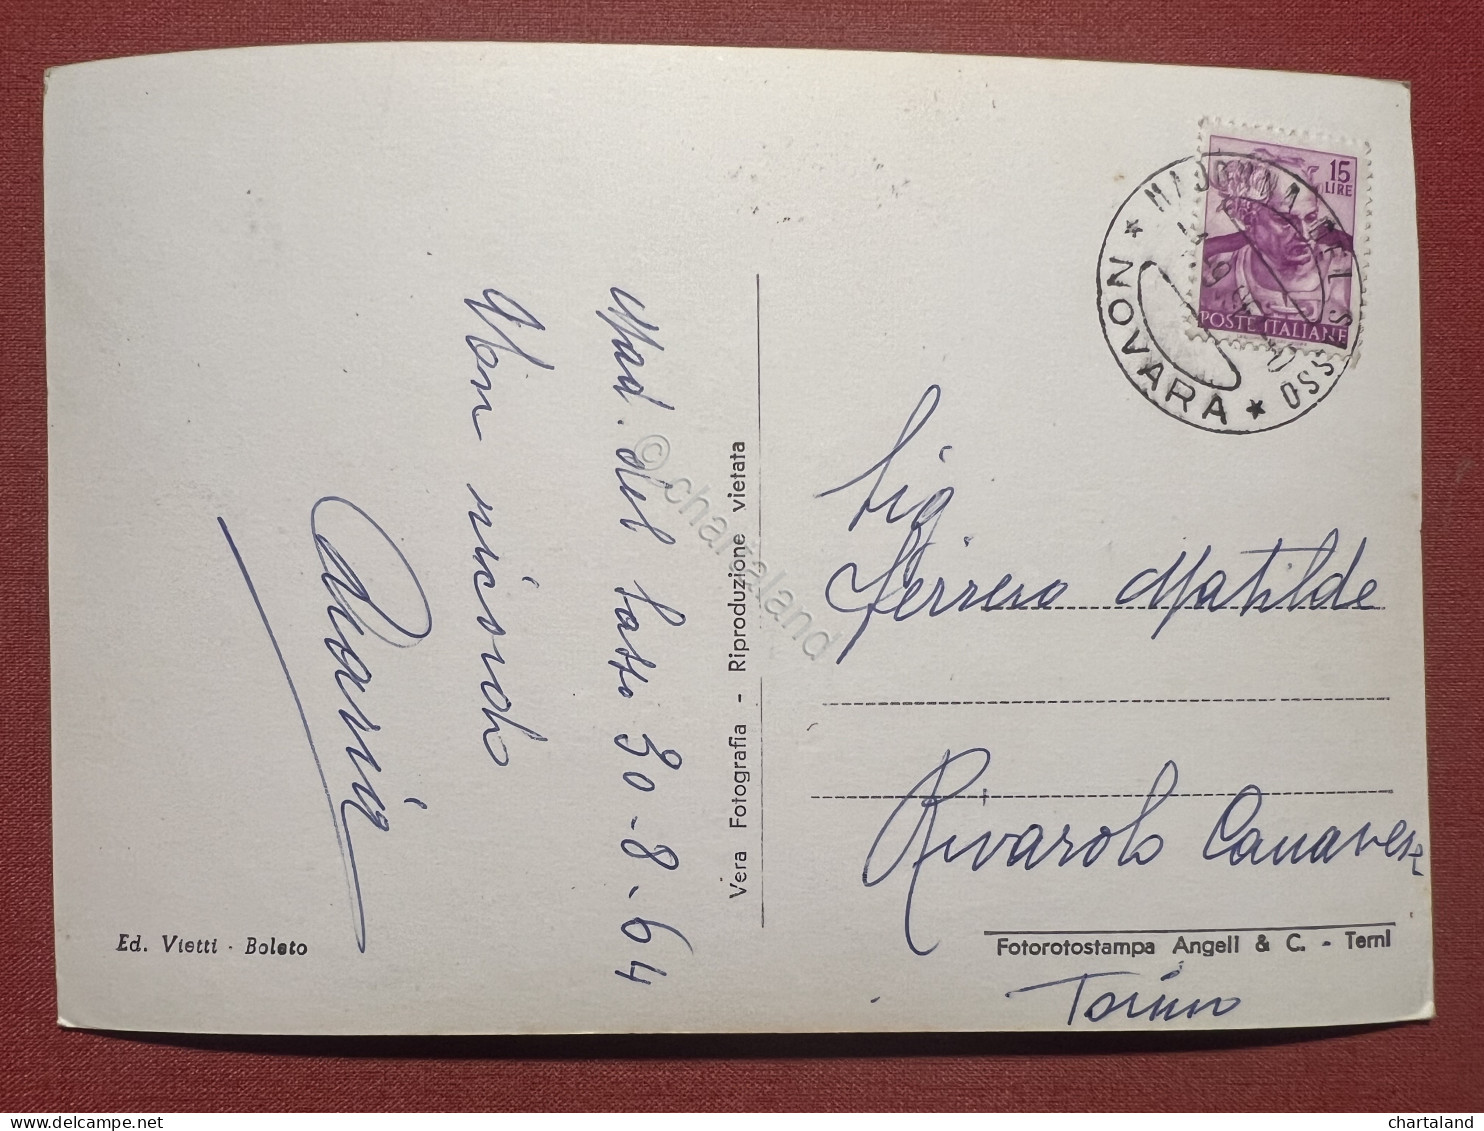 Mad. del Sasso 30-8-64
Un ricordo
Maria
Ed. Vietti - Boleto
Vera Fotografia - Riproduzione vietata
15
LIRE
POSTE ITALIANE
MADONNA DEL SASSO
* NOVARA *
Sig
Ferrero Matilde
Rivarolo Canavese
Fotorotostampa Angeli & C. - Terni
Torino
© chartaland
chartaland